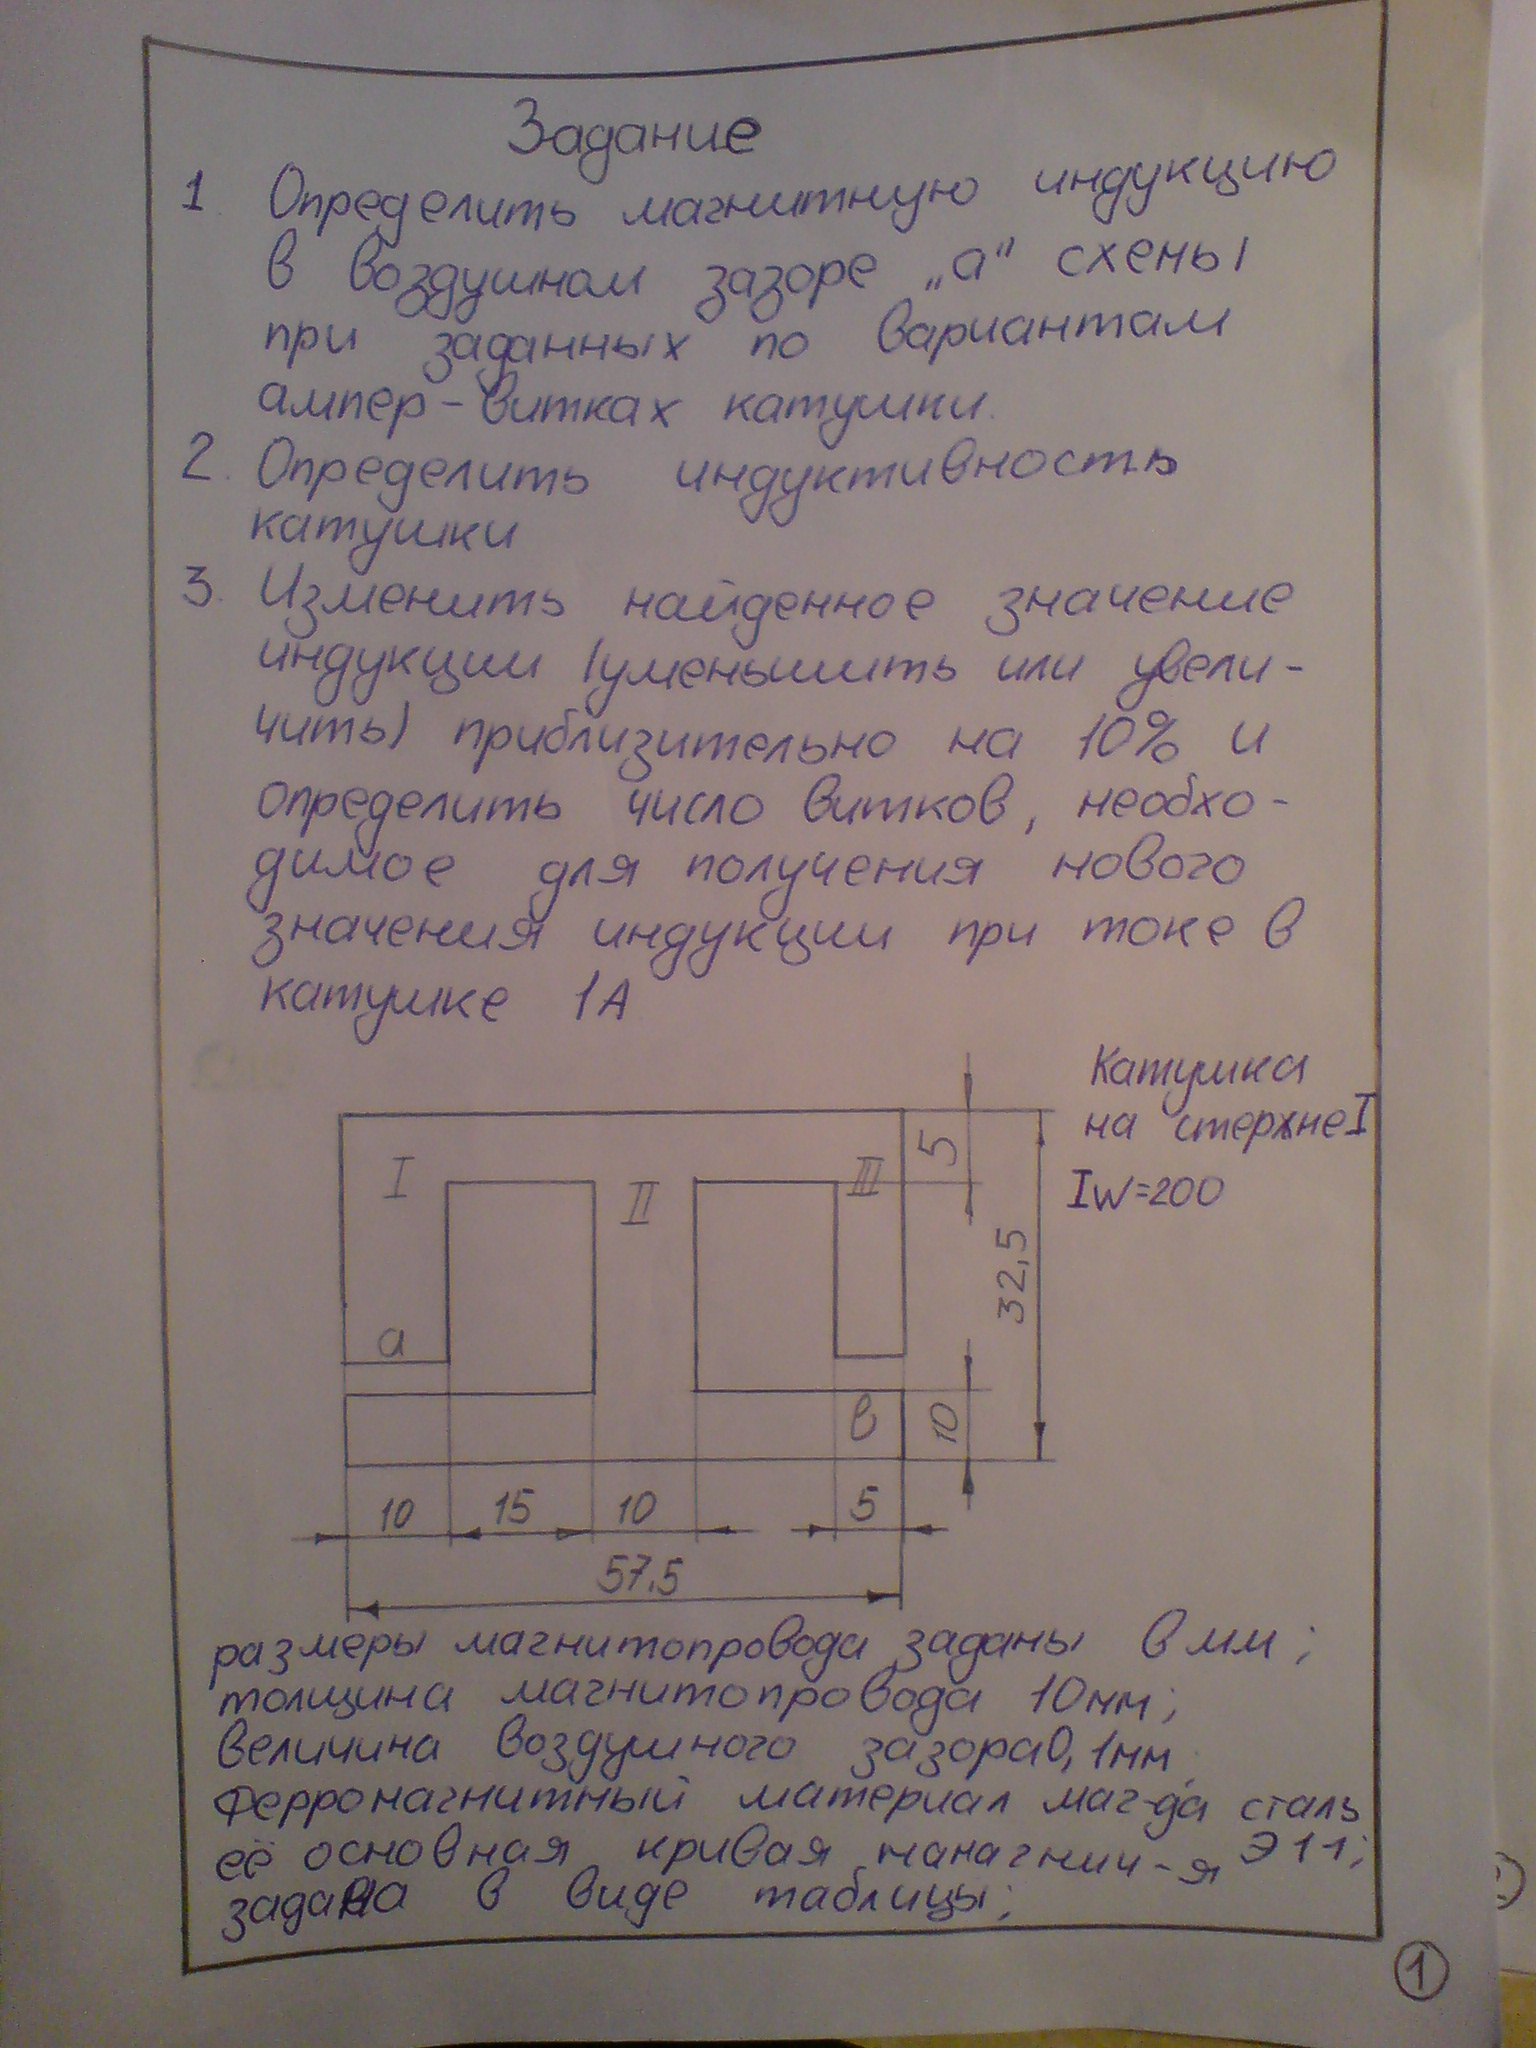 Задание
1 Определить магнитную индукцию
в воздушном зазоре „а" схемы
при заданных по вариантам
ампер-витках катушки.
2. Определить индуктивность
катушки
3. Изменить найденное значение
индукции (уменьшить или увели-
чить) приблизительно на 10% и
определить число витков, необхо-
димое для получения нового
значения индукции при токе в
катушке 1А
Катушка
на стержне I
Iw=200
I
II
III
5
32,5
а
в
10
10
15
10
5
57.5
размеры магнитопровода заданы в мм;
толщина магнитопровода 10мм;
величина воздушного зазора 0,1мм.
Ферромагнитный материал маг-да сталь
Э11;
её основная кривая намагнич-я
задана в виде таблицы;
1